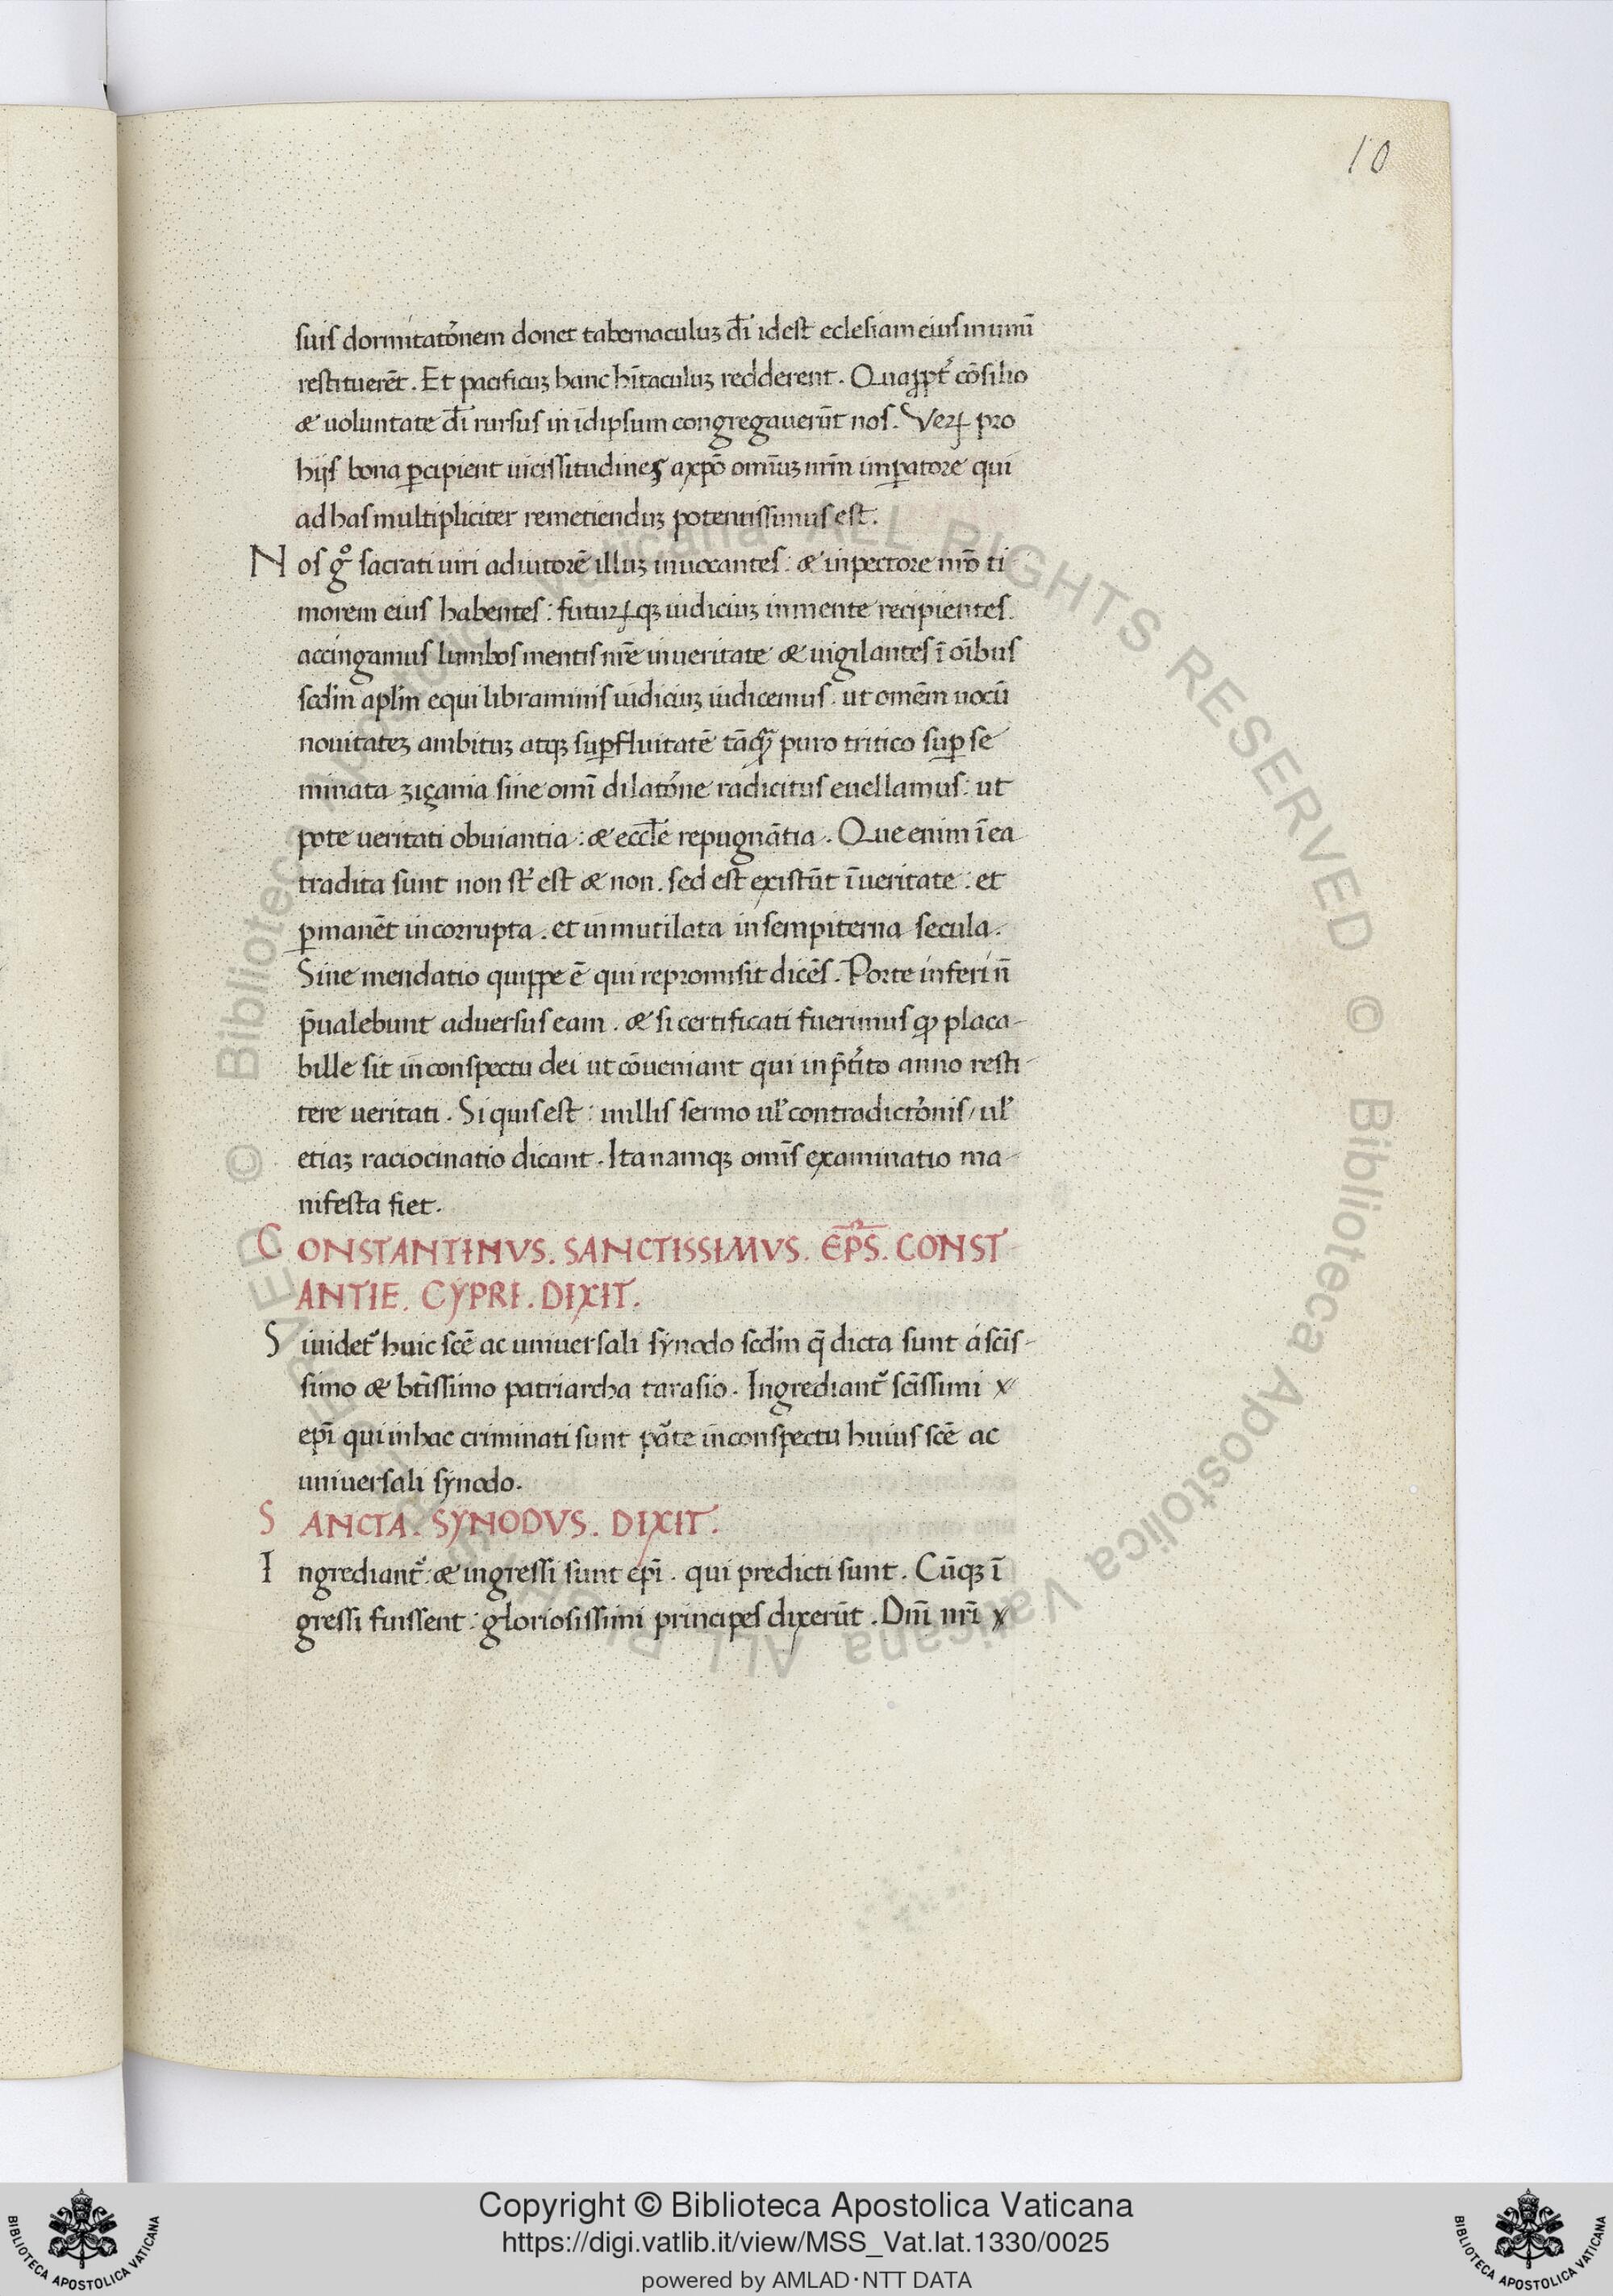 10
suis dormitatōnem donec tabernaculuꝫ dī idest eclesiam eius in unū
restituerēt. Et pacificuꝫ hanc hītaculuꝫ redderent. Quaꝓpt̄ cōsilio
& uoluntate dī rursus in idipsum congregauerūt nos. Veꝝ pro
hijs bona ꝑcipient uicissitudines axpō omiuꝫ nr̄m imꝑatore qui
ad has multipliciter remetienduꝫ potentissimus est.
Nos gͦ sacrati uiri adiutorē illuꝫ inuocantes: & inpectore nrō ti
morem eius habentes: futuꝝqꝫ iudiciuꝫ inmente recipientes.
accingamus lumbos mentis nrē inueritate & uigilantes ī oībus
scdm̄ aplm̄ equi libraminis iudiciuꝫ iudicemus. ut omēm uocū
nouitateꝫ ambituꝫ atqꝫ suꝑfluitatē tāꝙ puro tritico suꝑ se
minata ziçania sine omī dilatōne radicitus euellamus: ut
pote ueritati obuiantia: & eccłe repugnātia. Que enim ī ea
tradita sunt non st̄ est & non. sed est existūt īueritate: et
ꝑmanēt incorrupta. et inmutilata in sempiterna secula.
Sine mendatio quippe ē qui repromisit dicēs. Porte inferi n̄
p̄ualebunt aduersus eam. & si certificati fuerimus ꝙ placa-
bille sit in conspectu dei ut cōueniant qui inp̄t̄ito anno resti-
tere ueritati. Si quis est: illis sermo ul̄ contradictōnis / ul̄
etiaꝫ raciocinatio dicant. Ita namqꝫ omīs examinatio ma-
nifesta fiet.
CONSTANTINVS. SANCTISSIMVS. EP̄S. CONST
ANTIE. CYPRI. DIXIT.
Si uidet᷑ huic scē ac uniuersali synodo scdm̄ q̄ dicta sunt a scīs-
simo & btīssimo patriarcha tarasio. Ingrediant᷑ scīssimi
epī qui inhac criminati sunt pāte inconspectu huius scē ac
uniuersali synodo.
SANCTA. SYNODVS. DIXIT.
Ingrediant᷑: & ingressi sunt epī. qui predicti sunt. Cūqꝫ ī
gressi fuissent: gloriosissimi principes dixerūt. Dnī nrī
© Biblioteca Apostolica Vaticana ALL RIGHTS RESERVED © Biblioteca Apostolica Vaticana ALL RIGHTS RESERVED
Copyright © Biblioteca Apostolica Vaticana
https://digi.vatlib.it/view/MSS_Vat.lat.1330/0025
powered by AMLAD·NTT DATA
BIBLIOTECA APOSTOLICA VATICANA
BIBLIOTECA APOSTOLICA VATICANA